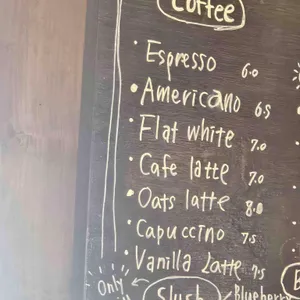 Coffee
· Espresso 6.0
· Americano 6.5
· Flat white 7.0
· Cafe latte 7.0
· Oats latte 8.0
· Capuccino 7.5
· Vanilla Latte 7.5
Only
Slush
Blueberry